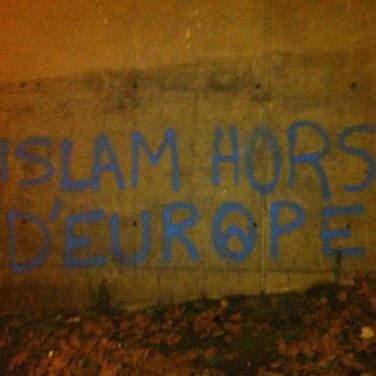 ISLAM HORS
D'EUROPE